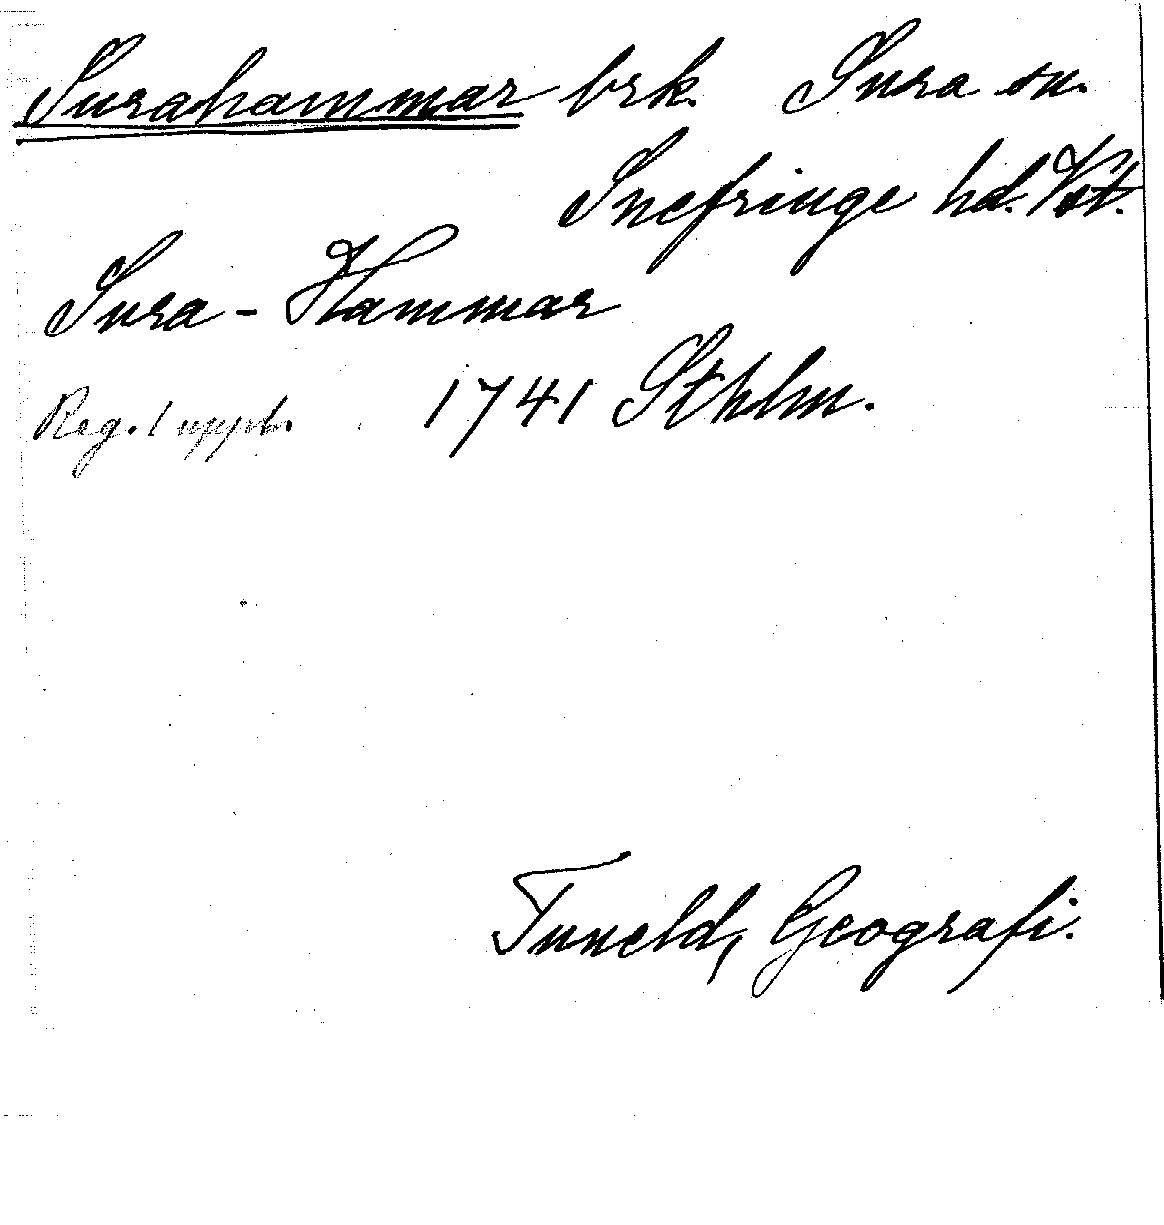 Surahammar brk. Sura sn.
Snefringe hd. Vst.
Sura-Hammar
Reg. 1 uppl. 1741 Sthlm.
Tuneld, Geografi.